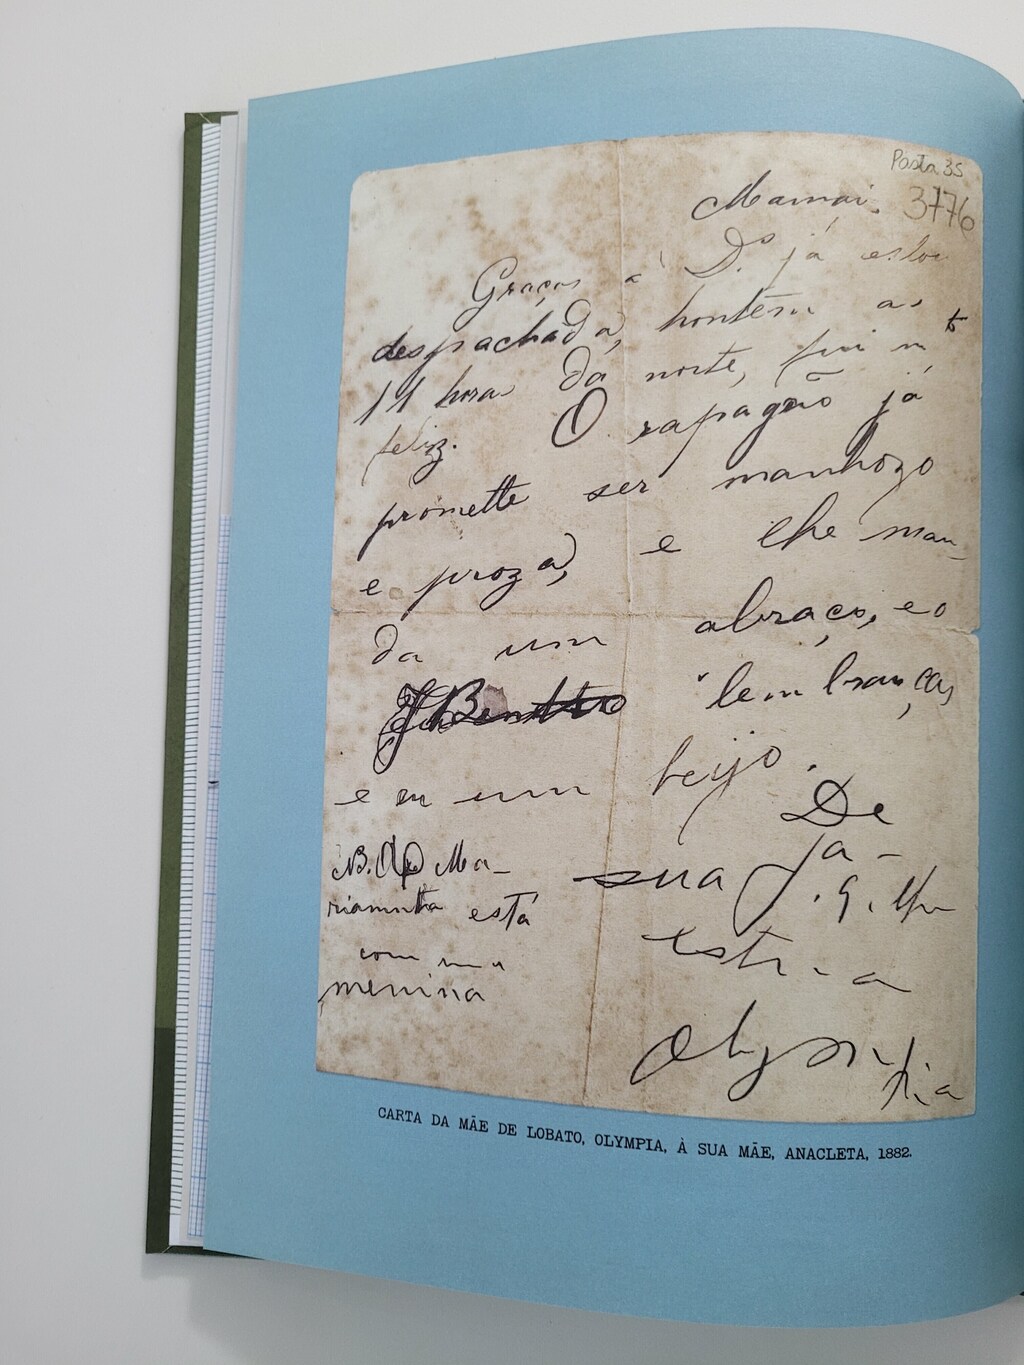 Pasta 35
3776
Mamai.
Graças a D.s já estou
despachada, hontem as
11 horas da noite, fui m.to
feliz. O rapagão já
promette ser manhozo
e proza, e lhe man-
da um abraço, e o
lembranças,
e eu um beijo.
De
sua fa-
N.B. Ma-
rianinha está
com uma
menina
Olympia
CARTA DA MÃE DE LOBATO, OLYMPIA, À SUA MÃE, ANACLETA, 1882.